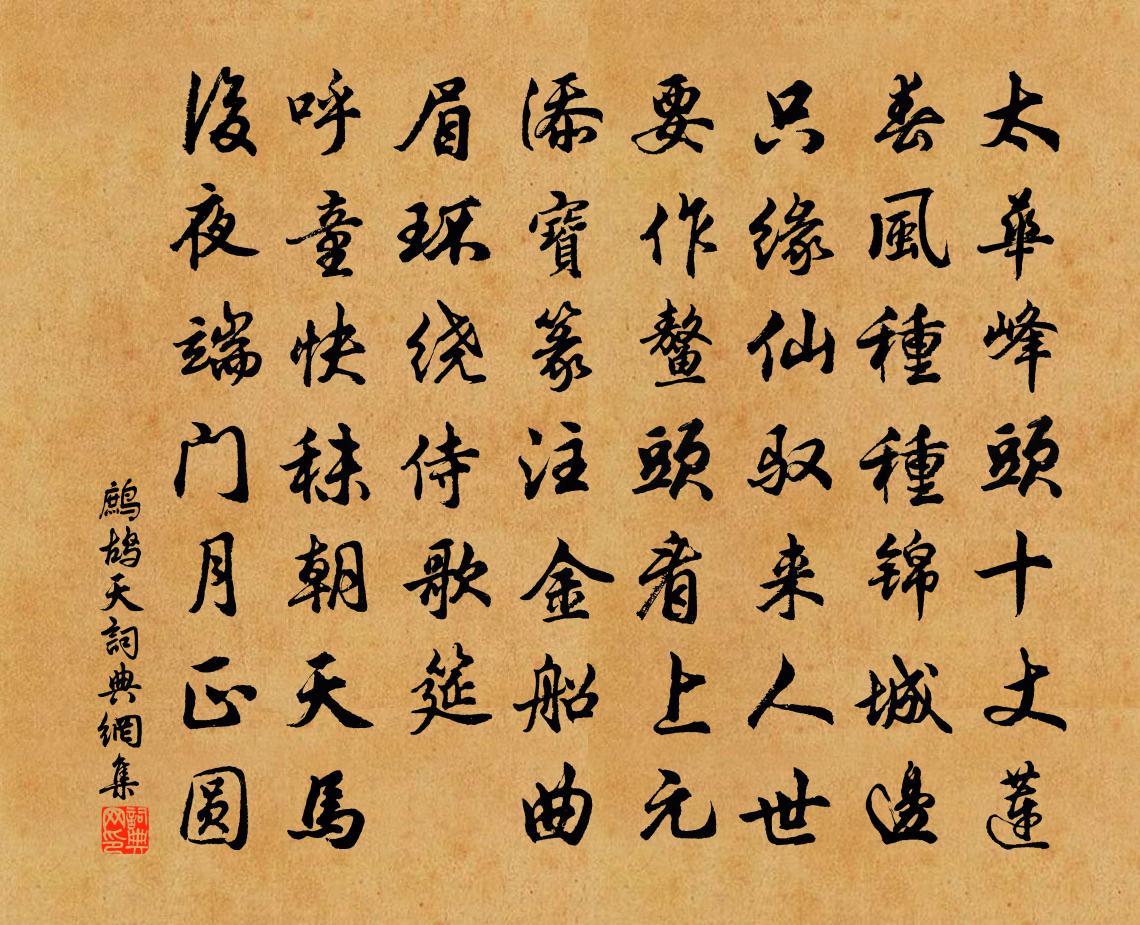 太華峰頭十丈蓮
春風種種錦城邊
只緣仙馭来人世
要作鳌頭看上元
添寶篆注金船曲
眉环绕侍歌筵
呼童快秣朝天馬
後夜端门月正圆
鹧鸪天詞典網集
詞典网印